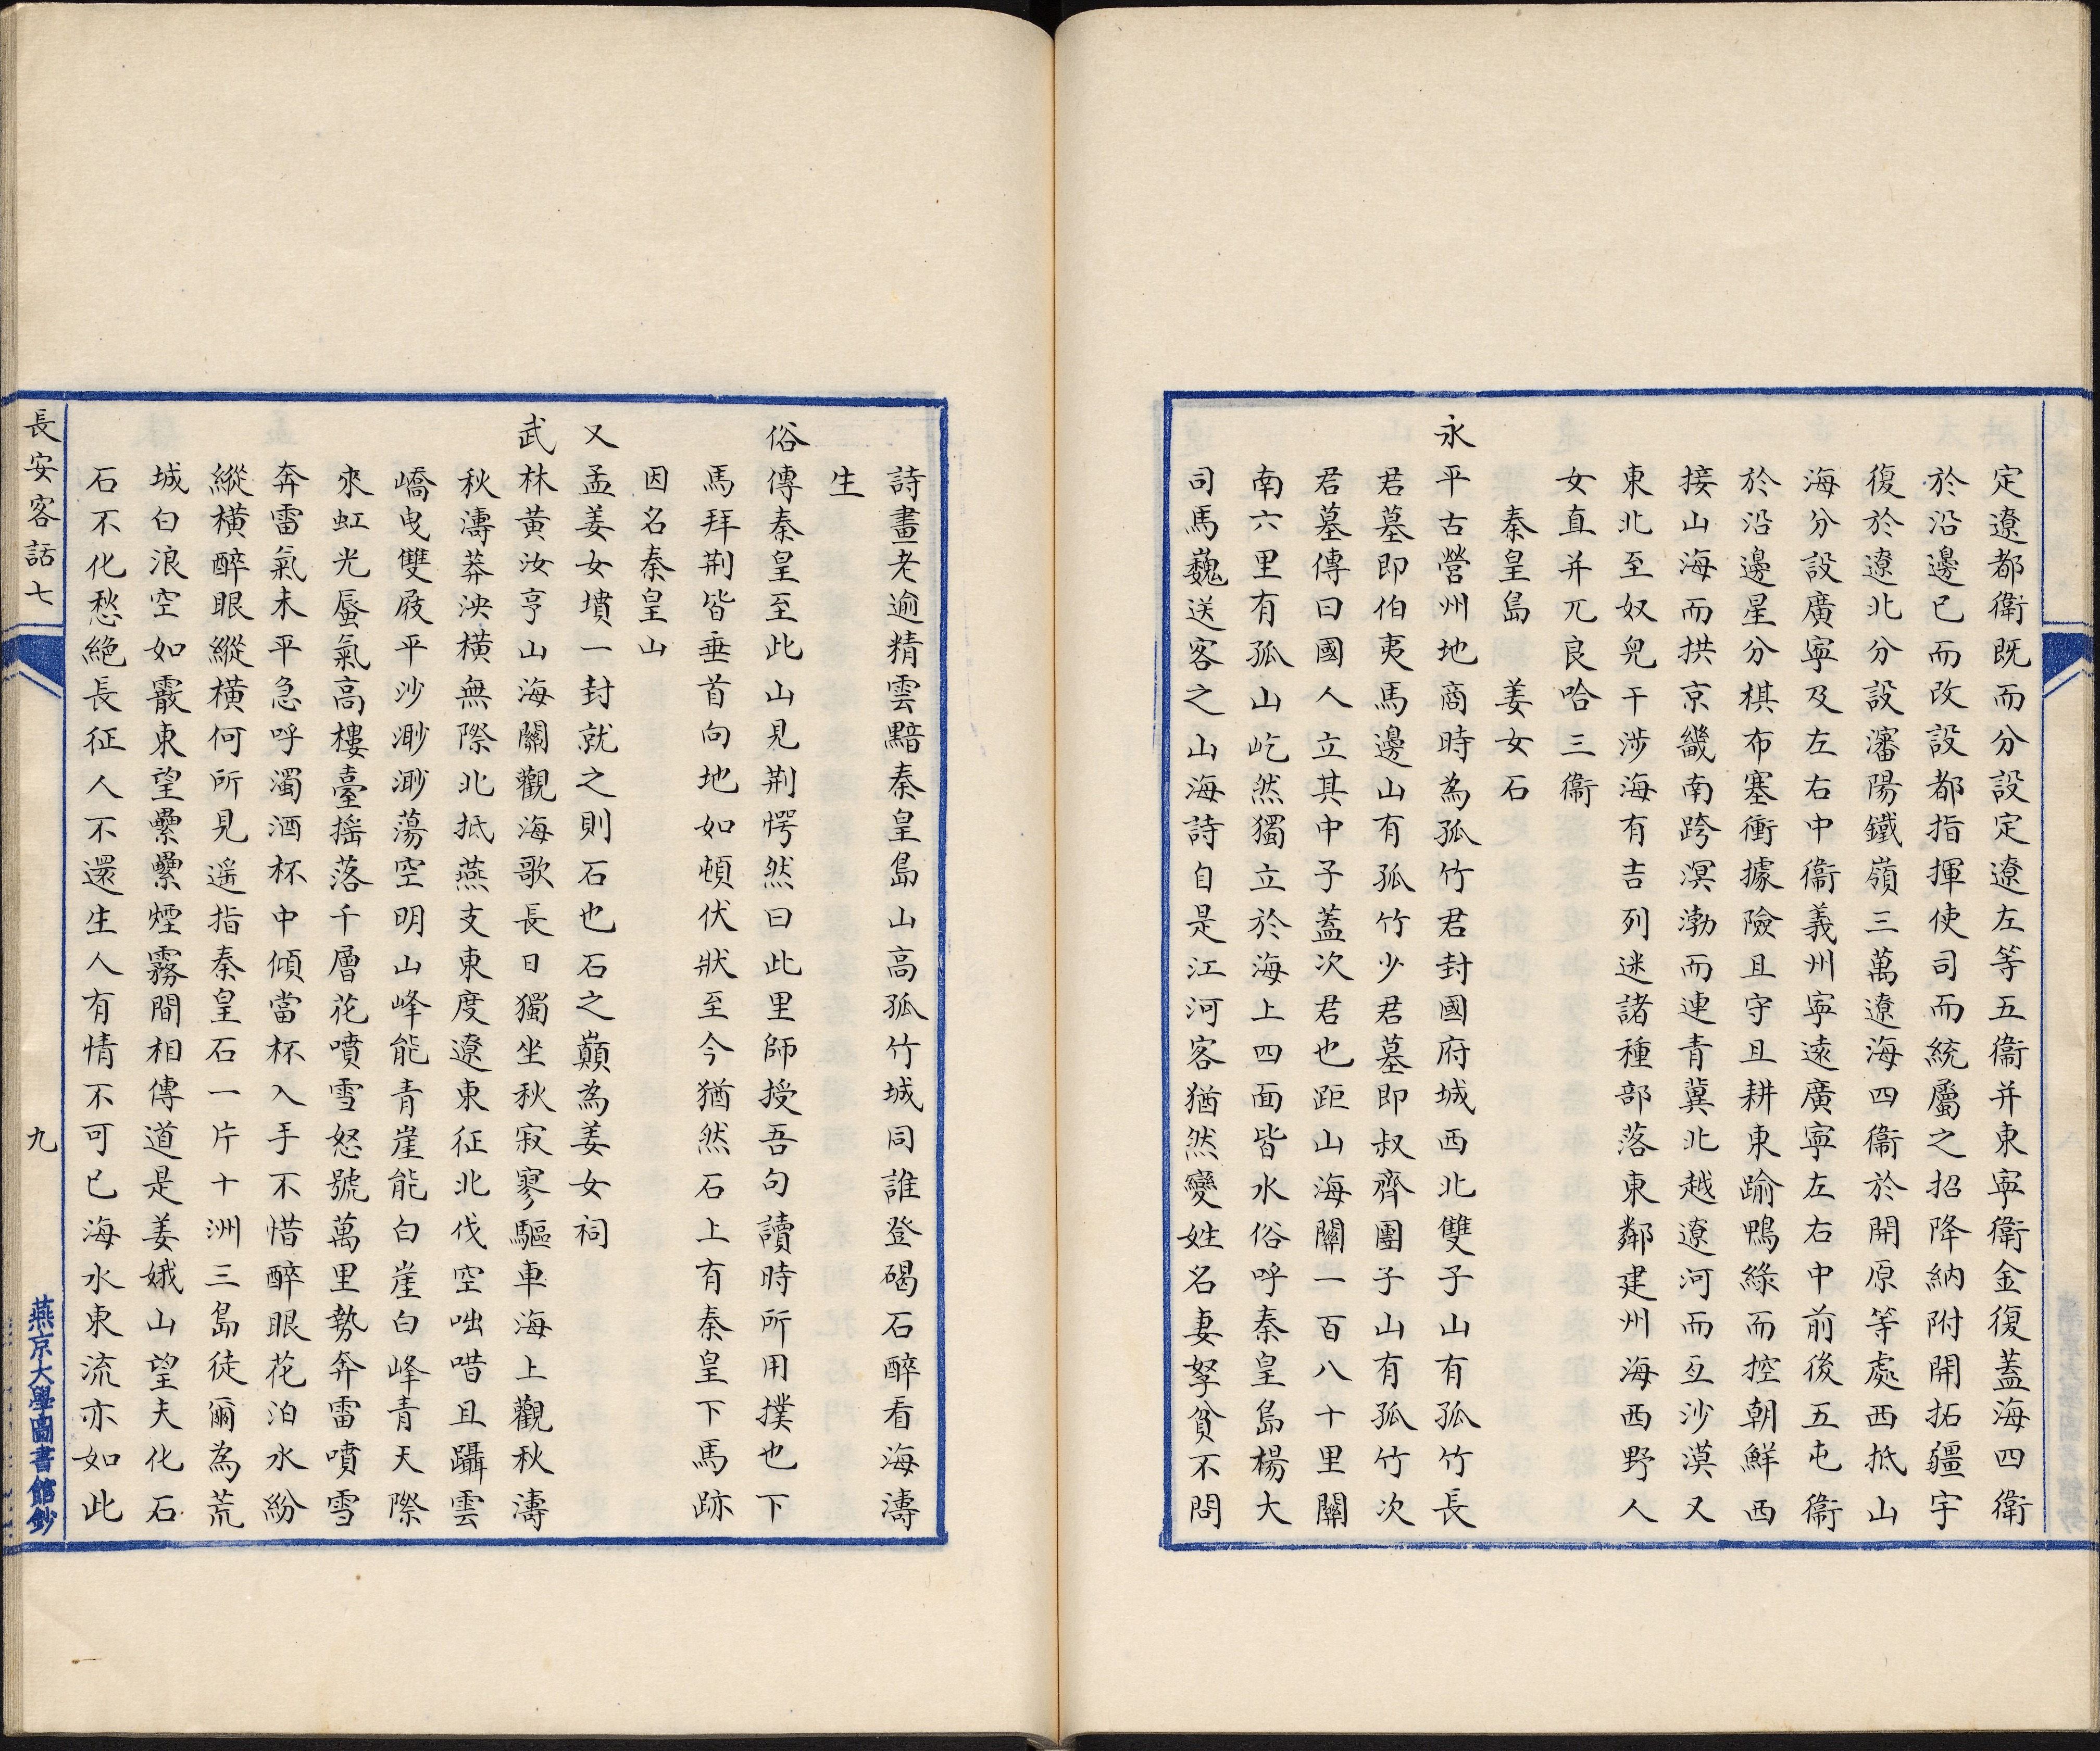 定遼都衛既而分設定遼左等五衞并東寧衛金復蓋海四衛
於沿邊已而改設都指揮使司而統屬之招降納附開拓疆宇
復於遼北分設瀋陽鐵嶺三萬遼海四衞於開原等處西抵山
海分設廣寧及左右中衞義州寧遠廣寧左右中前後五屯衞
於沿邊星分棋布塞衝據險且守且耕東踰鴨綠而控朝鮮西
接山海而拱京畿南跨溟渤而連青冀北越遼河而亙沙漠又
東北至奴兒干涉海有吉列迷諸種部落東鄰建州海西野人
女直并兀良哈三衞
秦皇島　姜女石
永平古營州地商時為孤竹君封國府城西北雙子山有孤竹長
君墓即伯夷馬邊山有孤竹少君墓即叔齊團子山有孤竹次
君墓傳曰國人立其中子蓋次君也距山海關一百八十里關
南六里有孤山屹然獨立於海上四面皆水俗呼秦皇島楊大
司馬巍送客之山海詩自是江河客猶然變姓名妻孥貧不問
詩畫老逾精雲黯秦皇島山高孤竹城同誰登碣石醉看海濤
生
俗傳秦皇至此山見荆愕然曰此里師授吾句讀時所用撲也下
馬拜荆皆垂首向地如頓伏狀至今猶然石上有秦皇下馬跡
因名秦皇山
又孟姜女墳一封就之則石也石之巔為姜女祠
武林黃汝亨山海關觀海歌長日獨坐秋寂寥驅車海上觀秋濤
秋濤莽泱橫無際北抵燕支東度遼東征北伐空咄唶且躡雲
嶠曳雙屐平沙渺渺蕩空明山峰能青崖能白崖白峰青天際
來虹光蜃氣高樓臺搖落千層花噴雪怒號萬里勢奔雷噴雪
奔雷氣未平急呼濁酒杯中傾當杯入手不惜醉眼花泊水紛
縱橫醉眼縱橫何所見遥指秦皇石一片十洲三島徒爾為荒
城白浪空如霰東望纍纍煙霧間相傳道是姜娥山望夫化石
石不化愁絕長征人不還生人有情不可已海水東流亦如此
長安客話七
九
燕京大學圖書館鈔